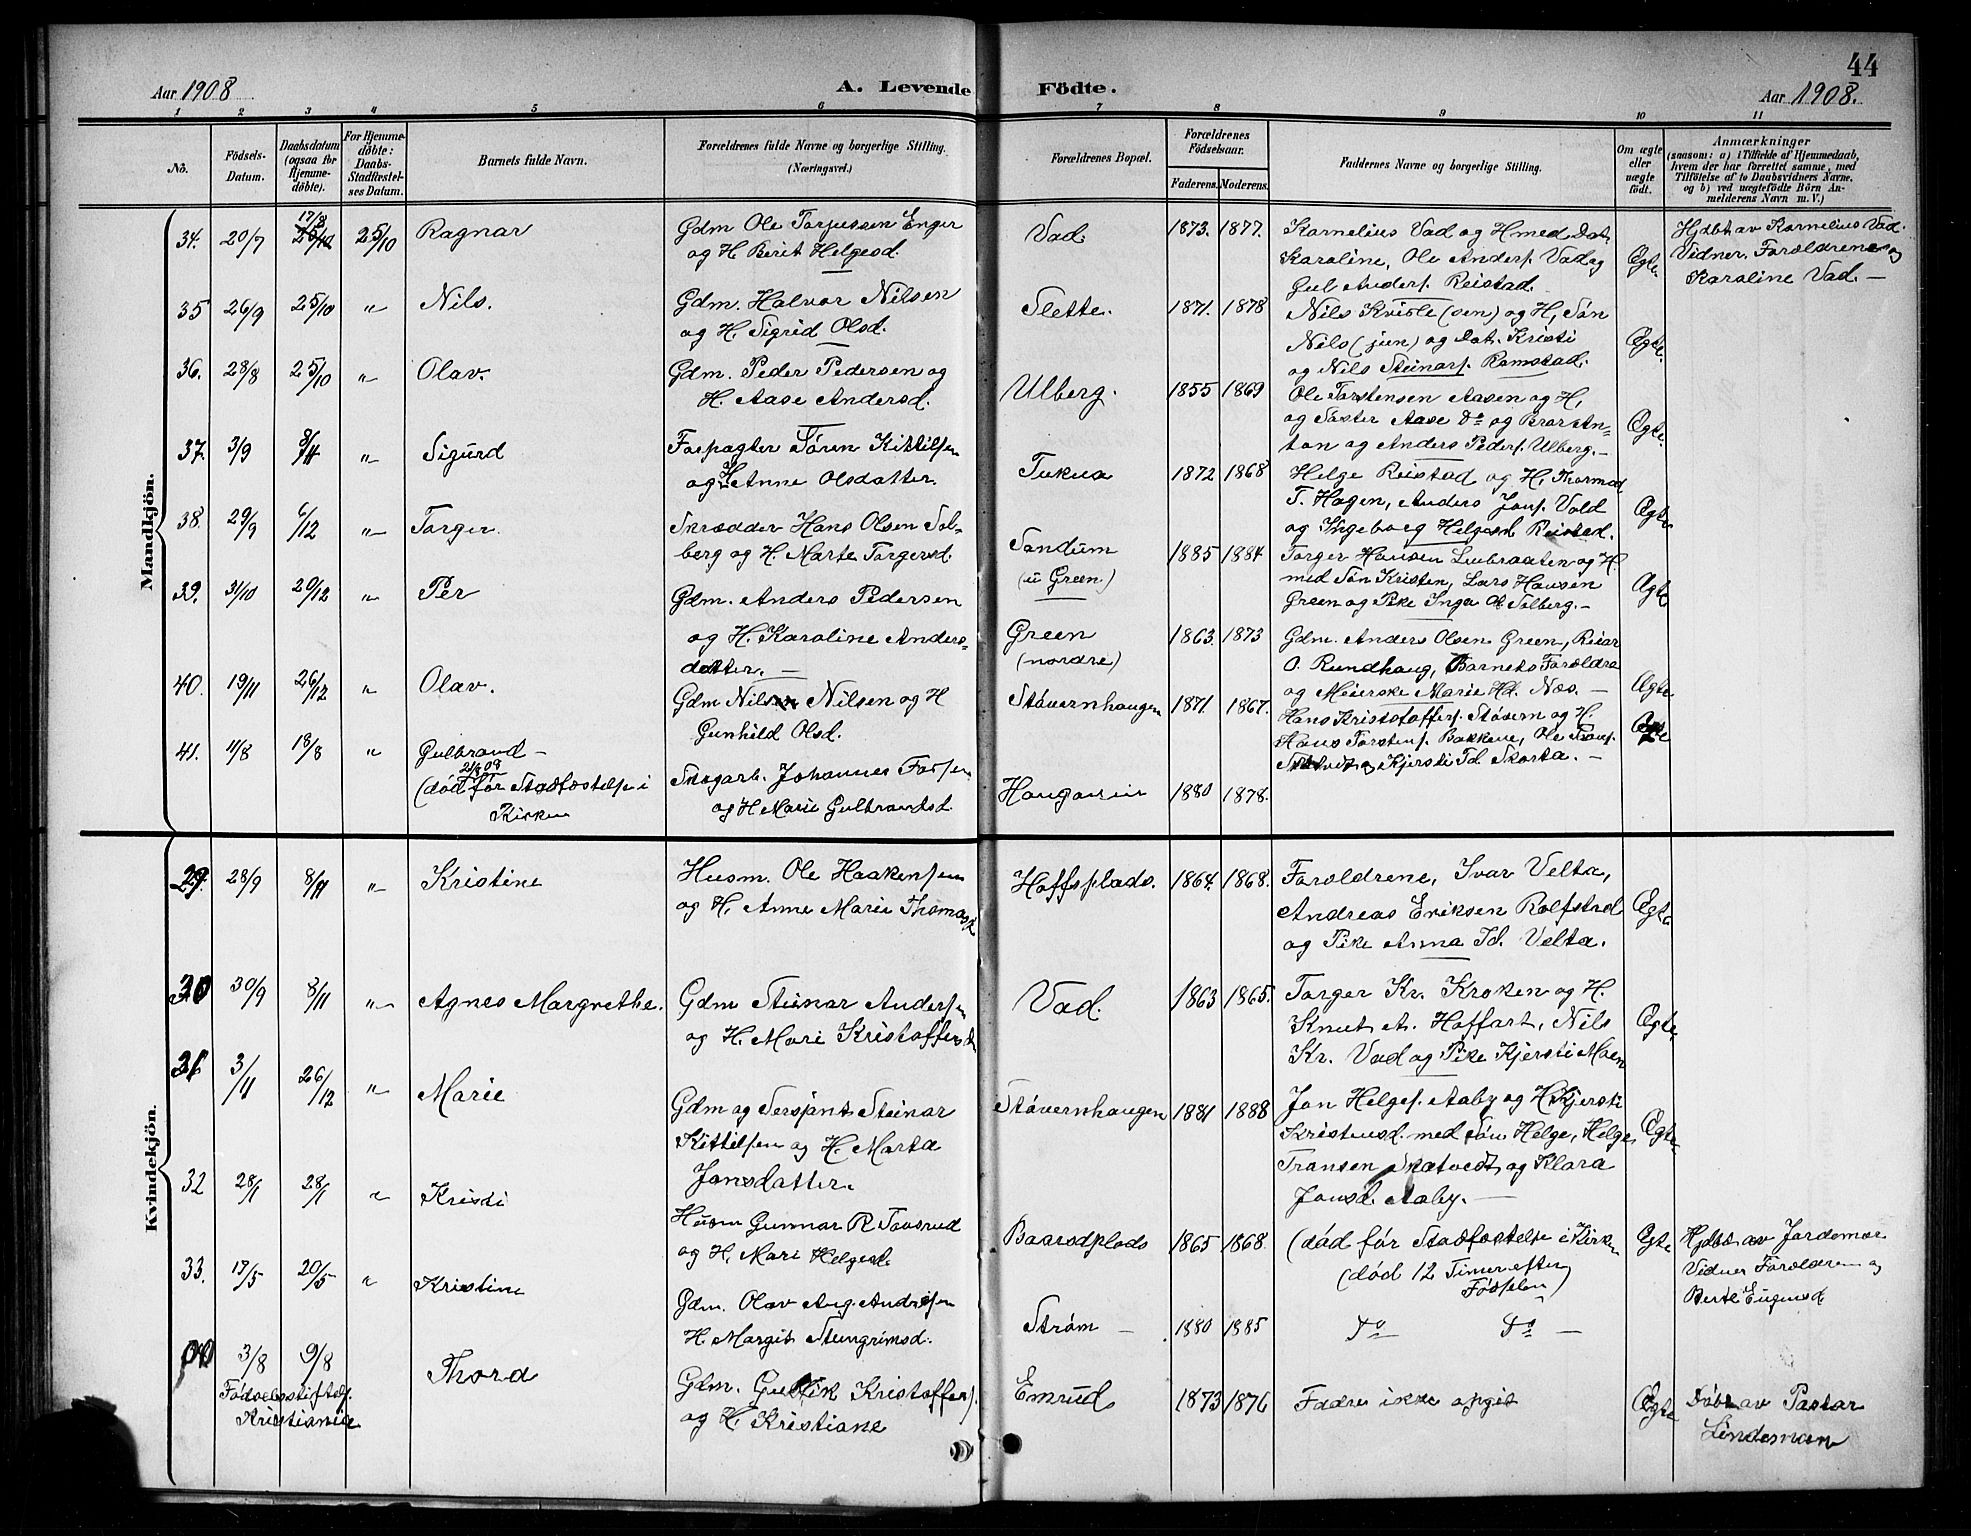 44
Aar 1908 A. Levende Födte. Aar 1908.
1 2 3 4 5 6 7 8 9 10 11
No.
Födsels-
Datum.
Daabsdatum
(ogsaa for
Hjemme-
döbte).
For Hjemme-
döbte:
Daabs-
Stadfæstel-
ses Datum.
Barnets fulde Navn.
Forældrenes fulde Navne og borgerlige Stilling.
(Næringsvei.)
Forældrenes Bopæl.
Forældrenes
Födselsaar.
Faderens. Moderens.
Faddernes Navne og borgerlige Stilling.
Om ægte
eller
uægte
födt.
Anmærkninger
(saasom: a) i Tilfælde af Hjemmedaab,
hvem der har forrettet samme, med
Tilföielse af to Daabsvidners Navne.
og b) ved uægtefödte Börn An-
melderens Navn m. V.)
Mandkjön.
34. 20/7 17/8 25/10 Ragnar
Gdm Ole Torjussen Enger
og H. Berit Helgesd.
Vad. 1873. 1877.
Kornelius Vad og H med Dat.
Karoline, Ole Anders. Vad og
Gul Anders. Reistad.
Ægte
Hjdbt av Kornelius Vad.
Vidner. Forældrene og
Karoline Vad. —
35 26/9 25/10 " Nils.
Gdm. Halvor Nilsen
og H. Sigrid Olsd.
Slette. 1871. 1878
Nils Kvisle (sen) og H, Søn
Nils (jun) og Dat. Kristi
og Nils Steinars. Ramstad.
Ægte.
36. 28/8 25/10 " Olav.
Gdm. Peder Pedersen og
H. Aase Andersd.
Ulberg. 1855 1869
Ole Torstensen Aasen og H,
og Søster Aase Do og Bror An-
ton og Anders Peders. Ulberg. —
Ægte.
37. 3/9 8/11 " Sigurd
Forpagter Søren Kittilsen
og H Anne Olsdatter.
Tukua 1872 1868
Helge Reistad og H, Thormod
T. Hagen, Anders Jons. Vold
og Ingeborg Helgesd Reistad.
Ægte
38. 29/9 6/12 " Torger.
Skrædder Hans Olsen Sol-
berg og H. Marte Torgersd.
Sondum
(u Green.)
1885 1884.
Torger Hansen Lubraaten og H.
med Søn Kristen, Lars Hansen
Green og Pike Inga O. Solberg. —
Ægte
39. 31/10 20/12 " Per
Gdm. Anders Pedersen
og H. Karoline Anders-
datter. —
Green
(nordre)
1863. 1873
Gdm. Anders Olsen Green, Reiar
O. Rundhaug, Barnets Forældre
og Meierske Marie Hd. Næs. —
Ægte
40. 19/11 26/12 " Olav.
Gdm Nils Nilsen og H
Gunhild Olsd.
Støvernhaugen 1871. 1867.
Hans Kristoffers. Støvern og H.
Hans Torstens. Bakkene, Ole Frans.
Skatvedt og Kjersti Td Skarta. —
Ægte
41. 11/8 18/8 " Gulbrand —
21/8 08
(død før Stadfæstelse i
Kirken
Skogarb. Johannes
og H Marie Gulbrandsd.
1880 1878.
Kvindekjön.
29. 28/9 8/11 " Kristine
Husm. Ole Haakensen
og H. Anne Marie Thomasd.
Hoffsplads. 1864. 1868.
Forældrene, Ivar Velta,
Andreas Eriksen Rolfstad
og Pike Anna Id. Velta.
Ægte
30 30/9 8/11 " Agnes Margrethe.
Gdm Steinar Andersen
og H. Mari Kristoffersd.
Vad. 1863 1865.
Torger Kr. Kroken og H.
Knut A. Hoffart, Nils
Kr. Vad og Pike Kjersti Moen
Ægte
31 3/11 26/12 " Marie
Gdm og Sersjant Steinar
Kittilsen og H. Marta
Jonsdatter.
Støvernhaugen 1881 1888
Jon Helges. Aaby og H Kjersti
Kristensd. med Søn Helge, Helge
Fransen Skatvedt og Klara
Jonsd. Aaby. —
Ægte
32 28/1 28/1 " Kristi
Husm Gunnar R. Tovsrud
og H. Mari Helgesd.
Baardplads 1865 1868.
(død før Stadfæstelse i Kirken
(død 12 Timer efter
Fødselen)
Ægte
Hjdbt av Jordemor
Vidner Forældrene og
Berte Eugensd
33. 17/5 20/5 " Kristine
Gdm. Olav Aug. Andresen
H. Margit Steingrimsd.
Strøm — 1880 1885 Do Do —
3/8 9/8 Thora
Fødselsstiftels.
Kristiania
Gdm. Gulbik Kristoffers.
og H. Kristiane
Emrud 1873 1876 Fadre ikke opgit Ægte
Døbt av Pastor
Lindeman